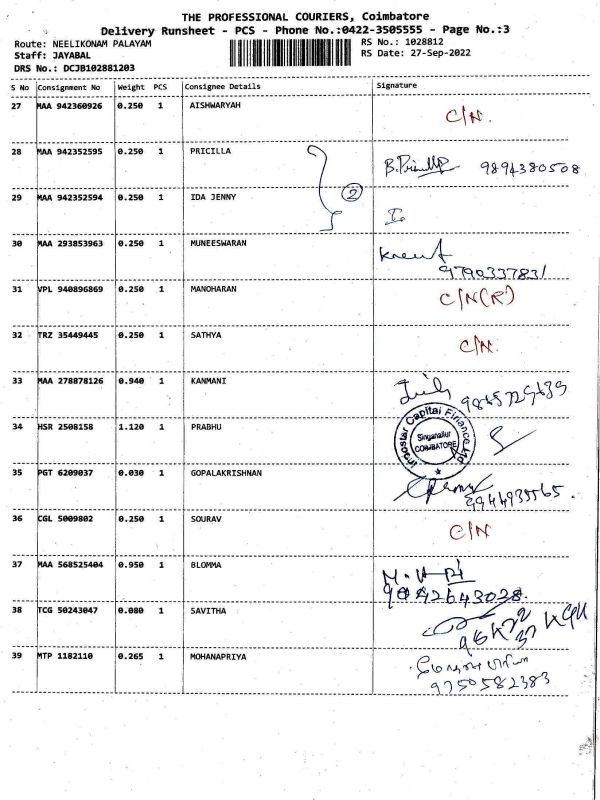 THE PROFESSIONAL COURIERS, Coimbatore
Delivery Runsheet - PCS - Phone No.:0422-3505555 - Page No.:3
Route: NEELIKONAM PALAYAM
RS No.: 1028812
Staff: JAYABAL
RS Date: 27-Sep-2022
DRS No.: DCJB102881203
S No Consignment No Weight PCS Consignee Details Signature
27 MAA 942360926 0.250 1 AISHWARYAH C/N.
28 MAA 942352595 0.250 1 PRICILLA 9894380508
2
29 MAA 942352594 0.250 1 IDA JENNY
30 MAA 293853963 0.250 1 MUNEESWARAN
9790337831
31 VPL 940896869 0.250 1 MANOHARAN C/N(R)
32 TRZ 35449445 0.250 1 SATHYA C/N.
33 MAA 278878126 0.940 1 KANMANI
34 HSR 2508158 1.120 1 PRABHU
Capital Finance Ltd
Singanallur
COIMBATORE
35 PGT 6209037 0.030 1 GOPALAKRISHNAN
36 CGL 5009802 0.250 1 SOURAV C/N
37 MAA 568525404 0.950 1 BLOMMA
9842643028.
38 TCG 50243047 0.080 1 SAVITHA
39 MTP 1182110 0.265 1 MOHANAPRIYA மோகனபிரியா
9750582383